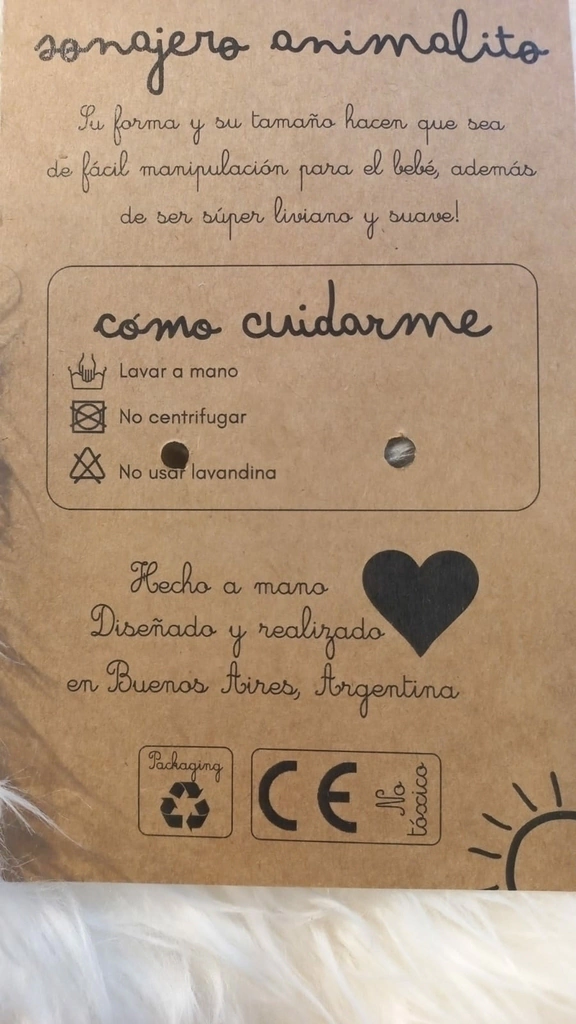 sonajero animalito
Su forma y su tamaño hacen que sea
de fácil manipulación para el bebé, además
de ser súper liviano y suave!
cómo cuidarme
Lavar a mano
No centrifugar
No usar lavandina
Hecho a mano
Diseñado y realizado
en Buenos Aires, Argentina
Packaging
CE
No
tóxico